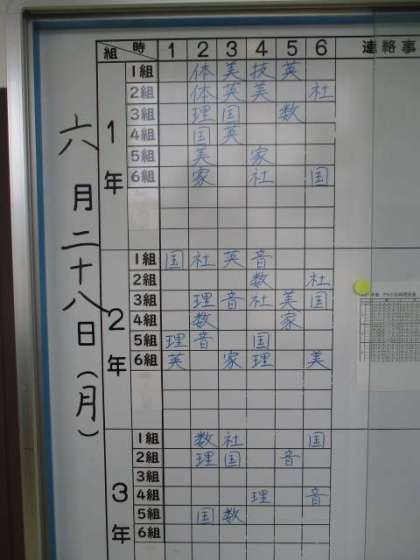 組 時 1 2 3 4 5 6 連絡事
六月二十八日(月)
1年
1組 体 美 技 英
2組 体 英 美 社
3組 理 国 数
4組 国 英
5組 美 家
6組 家 社 国
2年
1組 国 社 英 音
2組 数 社
3組 理 音 社 美 国
4組 数 家
5組 理 音 国
6組 英 家 理 美
3年
1組 数 社 国
2組 理 国 音
3組
4組 理 音
5組 国 数
6組